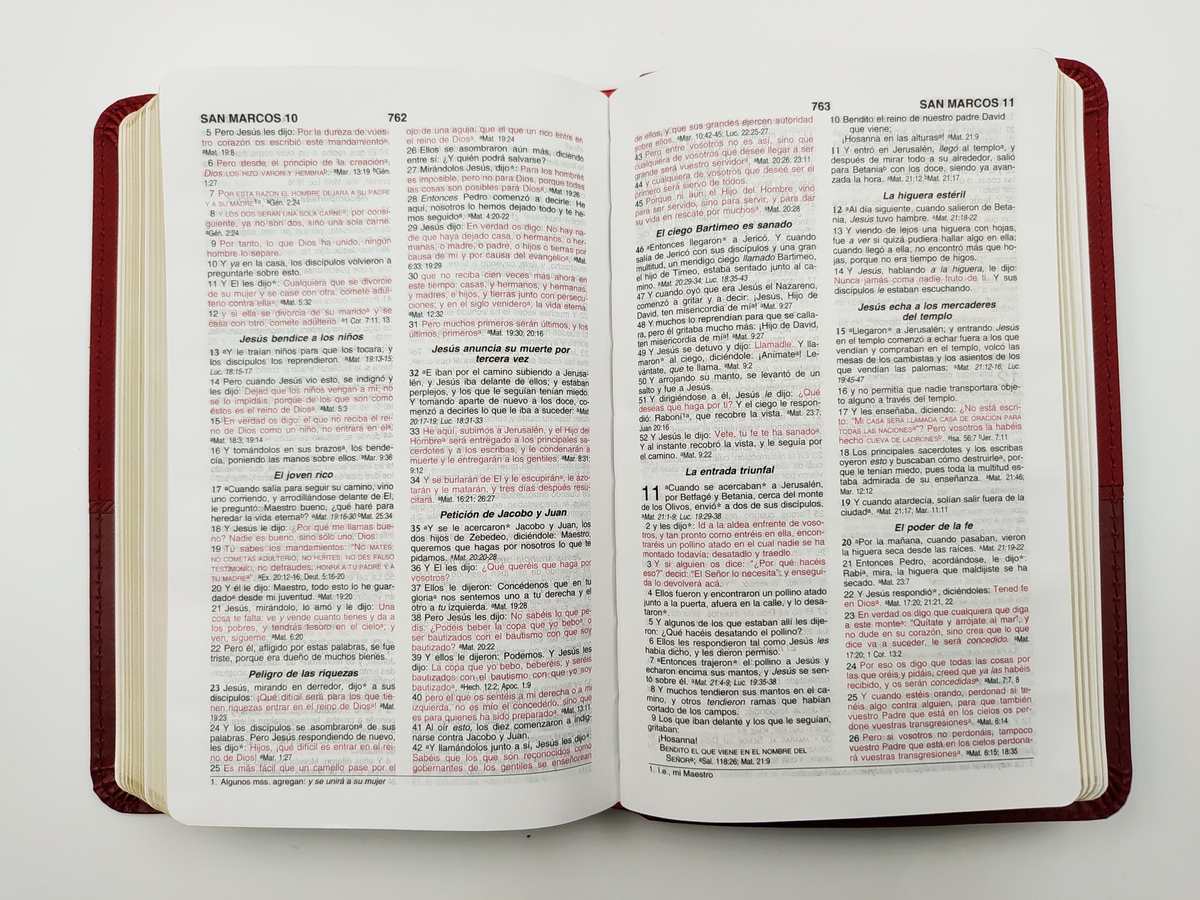 SAN MARCOS 10
762
5 Pero Jesús les dijo: Por la dureza de vues-
tro corazón os escribió este mandamientoª.
ªMat. 19:8
6 Pero desde el principio de la creaciónª,
Dios LOS HIZO VARON Y HEMBRAᵇ. ªMar. 13:19 ᵇGén.
1:27
7 POR ESTA RAZON EL HOMBRE DEJARA A SU PADRE
Y A SU MADRE¹ª, ªGén. 2:24
8 Y LOS DOS SERAN UNA SOLA CARNEª; por consi-
guiente, ya no son dos, sino una sola carne.
ªGén. 2:24
9 Por tanto, lo que Dios ha unido, ningún
hombre lo separe.
10 Y ya en la casa, los discípulos volvieron a
preguntarle sobre esto.
11 Y El les dijo*: Cualquiera que se divorcie
de su mujer y se case con otra, comete adul-
terio contra ellaª; ªMat. 5:32
12 y si ella se divorcia de su maridoª y se
casa con otro, comete adulterio. ª1 Cor. 7:11, 13
Jesús bendice a los niños
13 ªY le traían niños para que los tocara; y
los discípulos los reprendieron. ªMat. 19:13-15;
Luc. 18:15-17
14 Pero cuando Jesús vio esto, se indignó y
les dijo: Dejad que los niños vengan a mí; no
se lo impidáis, porque de los que son como
éstos es el reino de Diosª. ªMat. 5:3
15 En verdad os digo: el que no reciba el rei-
no de Dios como un niño, no entrará en élª.
ªMat. 18:3; 19:14
16 Y tomándolos en sus brazosª, los bende-
cía, poniendo las manos sobre ellos. ªMar. 9:36
El joven rico
17 ªCuando salía para seguir su camino, vino
uno corriendo, y arrodillándose delante de El,
le preguntó: Maestro bueno, ¿qué haré para
heredar la vida eternaᵇ? ªMat. 19:16-30 ᵇMat. 25:34
18 Y Jesús le dijo: ¿Por qué me llamas bue-
no? Nadie es bueno, sino sólo uno, Dios.
19 Tú sabes los mandamientos: "NO MATES,
NO COMETAS ADULTERIO, NO HURTES, NO DES FALSO
TESTIMONIO, no defraudes, HONRA A TU PADRE Y A
TU MADREª". ªEx. 20:12-16; Deut. 5:16-20
20 Y él le dijo: Maestro, todo esto lo he guar-
dadoª desde mi juventud. ªMat. 19:20
21 Jesús, mirándolo, lo amó y le dijo: Una
cosa te falta: ve y vende cuanto tienes y da a
los pobres, y tendrás tesoro en el cieloª; y
ven, sígueme. ªMat. 6:20
22 Pero él, afligido por estas palabras, se fue
triste, porque era dueño de muchos bienes.
Peligro de las riquezas
23 Jesús, mirando en derredor, dijo* a sus
discípulos: ¡Qué difícil será para los que tie-
nen riquezas entrar en el reino de Diosª! ªMat.
19:23
24 Y los discípulos se asombraronª de sus
palabras. Pero Jesús respondiendo de nuevo,
les dijo*: Hijos, ¡qué difícil es entrar en el rei-
no de Dios! ªMar. 1:27
25 Es más fácil que un camello pase por el
1. Algunos mss. agregan: y se unirá a su mujer
ojo de una aguja, que el que un rico entre en
el reino de Diosª. ªMat. 19:24
26 Ellos se asombraron aún más, diciendo
entre sí: ¿Y quién podrá salvarse?
27 Mirándolos Jesús, dijo*: Para los hombres
es imposible, pero no para Dios, porque todas
las cosas son posibles para Diosª. ªMat. 19:26
28 Entonces Pedro comenzó a decirle: He
aquí, nosotros lo hemos dejado todo y te he-
mos seguidoª. ªMat. 4:20-22
29 Jesús dijo: En verdad os digo: No hay na-
die que haya dejado casa, o hermanos, o her-
manas, o madre, o padre, o hijos o tierras por
causa de mí y por causa del evangelioª, ªMat.
6:33; 19:29
30 que no reciba cien veces más ahora en
este tiempo: casas, y hermanos, y hermanas,
y madres, e hijos, y tierras junto con persecu-
ciones; y en el siglo venideroª, la vida eterna.
ªMat. 12:32
31 Pero muchos primeros serán últimos, y los
últimos, primerosª. ªMat. 19:30; 20:16
Jesús anuncia su muerte por
tercera vez
32 ªE iban por el camino subiendo a Jerusa-
lén, y Jesús iba delante de ellos; y estaban
perplejos, y los que le seguían tenían miedo.
Y tomando aparte de nuevo a los doce, co-
menzó a decirles lo que le iba a suceder: ªMat.
20:17-19; Luc. 18:31-33
33 He aquí, subimos a Jerusalén, y el Hijo del
Hombreª será entregado a los principales sa-
cerdotes y a los escribas, y le condenarán a
muerte y le entregarán a los gentiles. ªMar. 8:31;
9:12
34 Y se burlarán de El y le escupiránª, le azo-
tarán y le matarán, y tres días después resu-
citará. ªMat. 16:21; 26:27
Petición de Jacobo y Juan
35 ªY se le acercaron* Jacobo y Juan, los
dos hijos de Zebedeo, diciéndole: Maestro,
queremos que hagas por nosotros lo que te
pidamos. ªMat. 20:20-28
36 Y El les dijo: ¿Qué queréis que haga por
vosotros?
37 Ellos le dijeron: Concédenos que en tu
gloriaª nos sentemos uno a tu derecha y el
otro a tu izquierda. ªMat. 19:28
38 Pero Jesús les dijo: No sabéis lo que pe-
dís. ¿Podéis beber la copa que yo beboª, o
ser bautizados con el bautismo con que soy
bautizado? ªMat. 20:22
39 Y ellos le dijeron: Podemos. Y Jesús les
dijo: La copa que yo bebo, beberéis; y seréis
bautizados con el bautismo con que yo soy
bautizadoª. ªHech. 12:2; Apoc. 1:9
40 pero el que os sentéis a mi derecha o a mi
izquierda, no es mío el concederlo, sino que
es para quienes ha sido preparadoª. ªMat. 13:11
41 Al oír esto, los diez comenzaron a indig-
narse contra Jacobo y Juan.
42 ªY llamándolos junto a sí, Jesús les dijo*:
Sabéis que los que son reconocidos como
gobernantes de los gentiles se enseñorean
763
SAN MARCOS 11
de ellos, y que sus grandes ejercen autoridad
sobre ellos. ªMar. 10:42-45; Luc. 22:25-27
43 Pero entre vosotros no es así, sino que
cualquiera de vosotros que desee llegar a ser
grande será vuestro servidorª, ªMat. 20:26; 23:11
44 y cualquiera de vosotros que desee ser el
primero será siervo de todos.
45 Porque ni aun el Hijo del Hombre vino
para ser servido, sino para servir, y para dar
su vida en rescate por muchosª. ªMat. 20:28
El ciego Bartimeo es sanado
46 ªEntonces llegaron* a Jericó. Y cuando
salía de Jericó con sus discípulos y una gran
multitud, un mendigo ciego llamado Bartimeo,
el hijo de Timeo, estaba sentado junto al ca-
mino. ªMat. 20:29-34; Luc. 18:35-43
47 Y cuando oyó que era Jesús el Nazareno,
comenzó a gritar y a decir: ¡Jesús, Hijo de
David, ten misericordia de míª! ªMat. 9:27
48 Y muchos lo reprendían para que se calla-
ra, pero él gritaba mucho más: ¡Hijo de David,
ten misericordia de míª! ªMat. 9:27
49 Y Jesús se detuvo y dijo: Llamadle. Y lla-
maron* al ciego, diciéndole: ¡Anímateª! Le-
vántate, que te llama. ªMat. 9:2
50 Y arrojando su manto, se levantó de un
salto y fue a Jesús.
51 Y dirigiéndose a él, Jesús le dijo: ¿Qué
deseas que haga por ti? Y el ciego le respon-
dió: Raboní¹ª, que recobre la vista. ªMat. 23:7;
Juan 20:16
52 Y Jesús le dijo: Vete, tu fe te ha sanadoª.
Y al instante recobró la vista, y le seguía por
el camino. ªMat. 9:22
La entrada triunfal
11 ªCuando se acercaban* a Jerusalén,
por Betfagé y Betania, cerca del monte
de los Olivos, envió* a dos de sus discípulos,
ªMat. 21:1-9; Luc. 19:29-38
2 y les dijo*: Id a la aldea enfrente de voso-
tros, y tan pronto como entréis en ella, encon-
traréis un pollino atado en el cual nadie se ha
montado todavía; desatadlo y traedlo.
3 Y si alguien os dice: "¿Por qué hacéis
eso?" decid: "El Señor lo necesita"; y ensegui-
da lo devolverá acá.
4 Ellos fueron y encontraron un pollino atado
junto a la puerta, afuera en la calle, y lo desa-
taron*.
5 Y algunos de los que estaban allí les dije-
ron: ¿Qué hacéis desatando el pollino?
6 Ellos les respondieron tal como Jesús les
había dicho, y les dieron permiso.
7 ªEntonces trajeron* el pollino a Jesús y
echaron encima sus mantos, y Jesús se sen-
tó sobre él. ªMat. 21:4-9; Luc. 19:35-38
8 Y muchos tendieron sus mantos en el ca-
mino, y otros tendieron ramas que habían
cortado de los campos.
9 Los que iban delante y los que le seguían,
gritaban:
¡Hosanna!
BENDITO EL QUE VIENE EN EL NOMBRE DEL
SEÑORª; ªSal. 118:26; Mat. 21:9
1. I.e., mi Maestro
10 Bendito el reino de nuestro padre David
que viene;
¡Hosanna en las alturasª! ªMat. 21:9
11 Y entró en Jerusalén, llegó al temploª, y
después de mirar todo a su alrededor, salió
para Betaniaᵇ con los doce, siendo ya avan-
zada la hora. ªMat. 21:12 ᵇMat. 21:17
La higuera estéril
12 ªAl día siguiente, cuando salieron de Beta-
nia, Jesús tuvo hambre. ªMat. 21:18-22
13 Y viendo de lejos una higuera con hojas,
fue a ver si quizá pudiera hallar algo en ella;
cuando llegó a ella, no encontró más que ho-
jas, porque no era tiempo de higos.
14 Y Jesús, hablando a la higuera, le dijo:
Nunca jamás coma nadie fruto de ti. Y sus
discípulos le estaban escuchando.
Jesús echa a los mercaderes
del templo
15 ªLlegaron* a Jerusalén; y entrando Jesús
en el templo comenzó a echar fuera a los que
vendían y compraban en el templo, volcó las
mesas de los cambistas y los asientos de los
que vendían las palomas; ªMat. 21:12-16; Luc.
19:45-47
16 y no permitía que nadie transportara obje-
to alguno a través del templo.
17 Y les enseñaba, diciendo: ¿No está escri-
to: "MI CASA SERA LLAMADA CASA DE ORACION PARA
TODAS LAS NACIONESª"? Pero vosotros la habéis
hecho CUEVA DE LADRONESᵇ. ªIsa. 56:7 ᵇJer. 7:11
18 Los principales sacerdotes y los escribas
oyeron esto y buscaban cómo destruirleª, por-
que le tenían miedo, pues toda la multitud es-
taba admirada de su enseñanza. ªMat. 21:46;
Mar. 12:12
19 Y cuando atardecía, solían salir fuera de la
ciudadª. ªMat. 21:17; Mar. 11:11
El poder de la fe
20 ªPor la mañana, cuando pasaban, vieron
la higuera seca desde las raíces. ªMat. 21:19-22
21 Entonces Pedro, acordándose, le dijo*:
Rabíª, mira, la higuera que maldijiste se ha
secado. ªMat. 23:7
22 Y Jesús respondió*, diciéndoles: Tened fe
en Diosª. ªMat. 17:20; 21:21, 22
23 En verdad os digo que cualquiera que diga
a este monteª: "Quítate y arrójate al mar", y
no dude en su corazón, sino crea que lo que
dice va a suceder, le será concedido. ªMat.
17:20; 1 Cor. 13:2
24 Por eso os digo que todas las cosas por
las que oréis y pidáis, creed que ya las habéis
recibido, y os serán concedidasª. ªMat. 7:7, 8
25 Y cuando estéis orando, perdonad si te-
néis algo contra alguien, para que también
vuestro Padre que está en los cielos os per-
done vuestras transgresionesª. ªMat. 6:14
26 Pero si vosotros no perdonáis, tampoco
vuestro Padre que está en los cielos perdona-
rá vuestras transgresionesª. ªMat. 6:15; 18:35